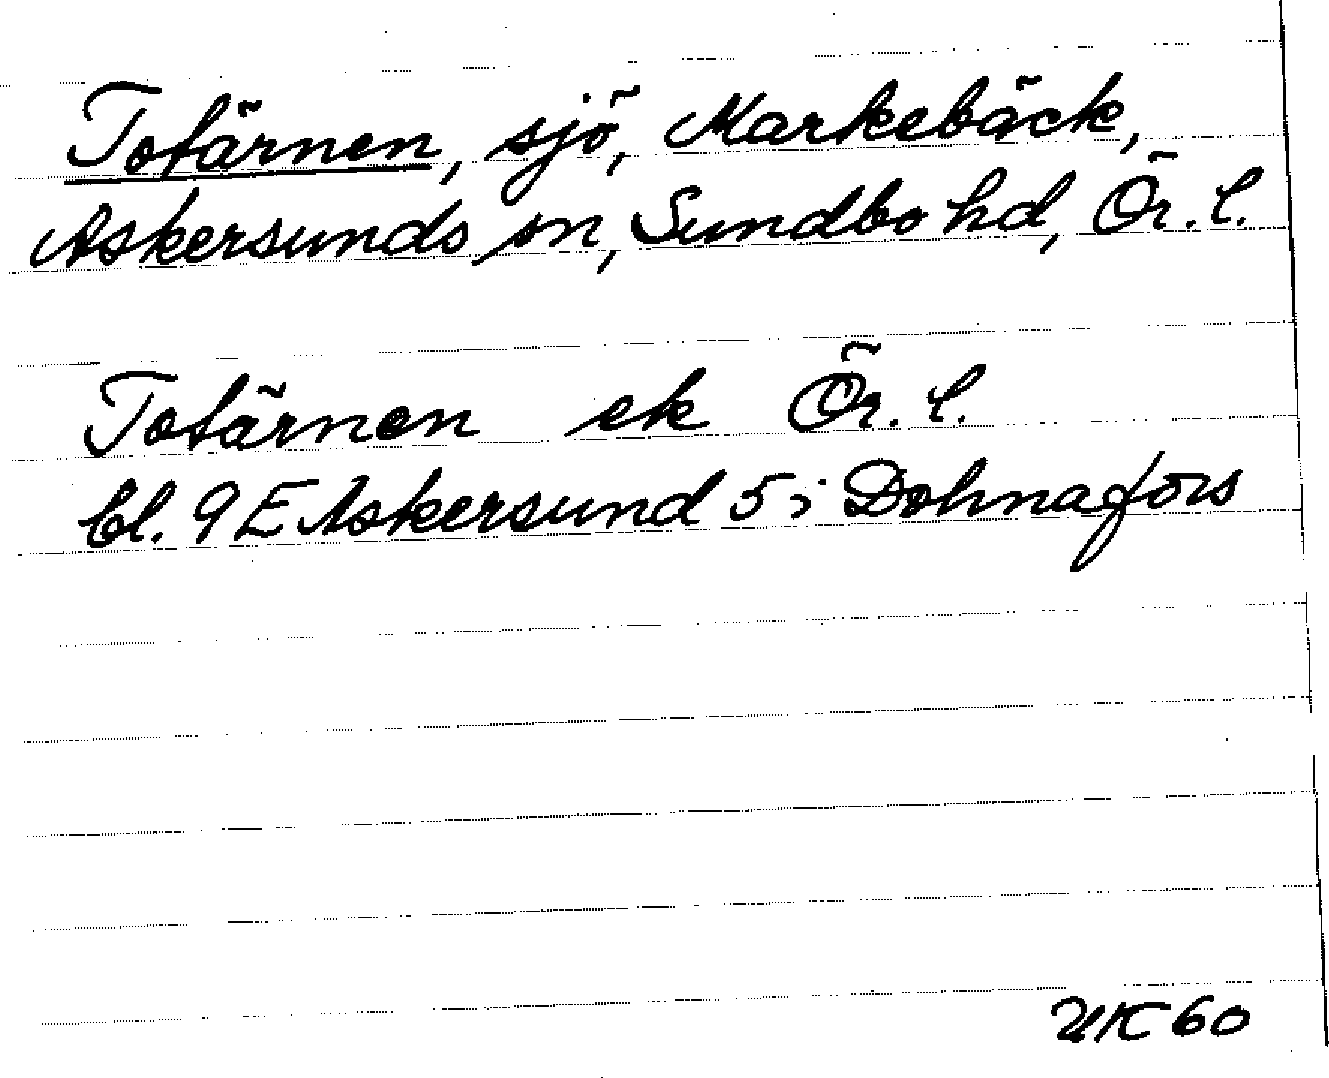 Tofärnen, sjö, Markebäck,
Askersunds sn, Sundbo hd, Ör. l.
Tofärnen ek Ör. l.
bl. 9E Askersund 5i Dohnafors
UK 60